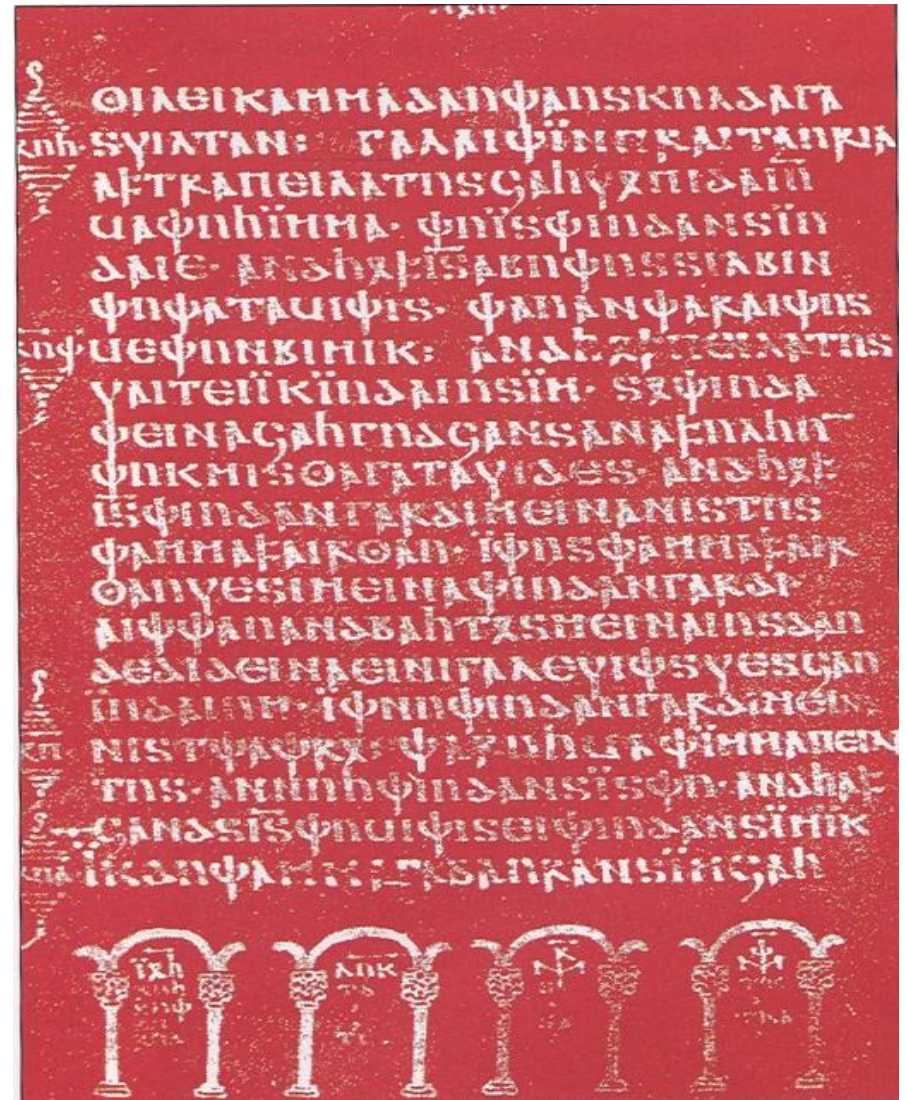 𐍈𐌹𐌻𐌴𐌹𐌺𐌰𐌼𐌼𐌰𐌳𐌰𐌿𐌸𐌰𐌿𐍃𐌺𐌿𐌻𐌳𐌰𐌲𐌰
𐍃𐍅𐌹𐌻𐍄𐌰𐌽: 𐌲𐌰𐌻𐌰𐌹𐌸𐌹̈𐌽𐍀𐍂𐌰𐌹𐍄𐌰𐌿𐍂𐌹𐌰
𐌰𐍆𐍄𐍂𐌰𐍀𐌴𐌹𐌻𐌰𐍄𐌿𐍃𐌾𐌰𐌷𐍅𐍉𐍀𐌹𐌳𐌰𐌹̅𐌿̅
𐌵𐌰𐌸𐌿𐌷𐌹̈𐌼𐌼𐌰· 𐌸𐌿𐌹̈𐍃𐌸𐌹𐌿𐌳𐌰𐌽𐍃𐌹̈𐌿
𐌳𐌰𐌹𐌴· 𐌰𐌽𐌳𐌷𐍉𐍆𐌹̅𐍃̅𐌰𐌱𐌿𐌸𐌿𐍃𐍃𐌹𐌻𐌱𐌹𐌽
𐌸𐌿𐌸𐌰𐍄𐌰𐌵𐌹𐌸𐌹𐍃· 𐌸𐌰𐌿𐌰𐌽𐌸𐌰𐍂𐌰𐌹𐌸𐌿𐍃
𐌵𐌴𐌸𐌿𐌽𐌱𐌹𐌼𐌹𐌺: 𐌰𐌽𐌳𐌷𐍉𐍆𐍀𐌴𐌹𐌻𐌰𐍄𐌿𐍃
𐍅𐌰𐌹𐍄𐌴𐌹𐌹̈𐌺𐌹̈𐌿𐌳𐌰𐌹𐌿𐍃𐌹̈𐌼· 𐍃𐍉𐌸𐌹𐌿𐌳𐌰
𐌸𐌴𐌹𐌽𐌰𐌾𐌰𐌷𐌲𐌿𐌳𐌾𐌰𐌽𐍃𐌰𐌽𐌰𐍆𐌿𐌻𐌷𐌿̅
𐌸𐌿𐌺𐌼𐌹𐍃𐍈𐌰𐌲𐌰𐍄𐌰𐍅𐌹𐌳𐌴𐍃· 𐌰𐌽𐌳𐌷𐍉𐍆
𐌹̅𐍃̅𐌸𐌹𐌿𐌳𐌰𐌽𐌲𐌰𐍂𐌳𐌹𐌼𐌴𐌹𐌽𐌰𐌽𐌹𐍃𐍄𐌿𐍃
𐌸𐌰𐌼𐌼𐌰𐍆𐌰𐌹𐍂𐍈𐌰𐌿· 𐌹̈𐌸𐌿𐍃𐌸𐌰𐌼𐌼𐌰𐍆𐌰𐌹𐍂
𐍈𐌰𐌿𐍅𐌴𐍃𐌹𐌼𐌴𐌹𐌽𐌰𐌸𐌹𐌿𐌳𐌰𐌽𐌲𐌰𐍂𐌳𐌹
𐌰𐌹𐌸𐌸𐌰𐌿𐌰𐌽𐌳𐌱𐌰𐌷𐍄𐍉𐍃𐌼𐌴𐌹𐌽𐌰𐌹𐌿𐍃𐌳𐌰𐌿
𐌳𐌴𐌳𐌹𐌳𐌴𐌹𐌽𐌰𐌴𐌹𐌽𐌹𐌲𐌰𐌻𐌴𐍅𐌹𐌸𐍃𐍅𐌴𐍃𐌾𐌰𐌿
𐌹̈𐌿𐌳𐌰𐌹𐌿𐌼· 𐌹̈𐌸𐌽𐌿𐌸𐌹𐌿𐌳𐌰𐌽𐌲𐌰𐍂𐌳𐌹𐌼𐌴𐌹𐌽𐌰
𐌽𐌹𐍃𐍄𐌸𐌰𐌸𐍂𐍉· 𐌸𐌰𐍂𐌿𐌷𐌵𐌰𐌸𐌹̈𐌼𐌼𐌰𐍀𐌴𐌹𐌻𐌰
𐍄𐌿𐍃· 𐌰𐌽𐌽𐌿𐌷𐌸𐌹𐌿𐌳𐌰𐌽𐍃𐌹̈𐍃𐌸𐌿· 𐌰𐌽𐌳𐌷𐌰𐍆
𐌾𐌰𐌽𐌳𐍃𐌹̅𐍃̅𐌸𐌿𐌵𐌹𐌸𐌹𐍃𐌴𐌹𐌸𐌹𐌿𐌳𐌰𐌽𐍃𐌹̈𐌼𐌹𐌺
𐌹̈𐌺𐌳𐌿𐌸𐌰𐌼𐌼𐌰𐌲𐌰𐌱𐌰𐌿𐍂𐌰𐌽𐍃𐌹̈𐌼𐌾𐌰𐌷
𐌹̈𐍉𐌷 𐌻𐌿𐌺